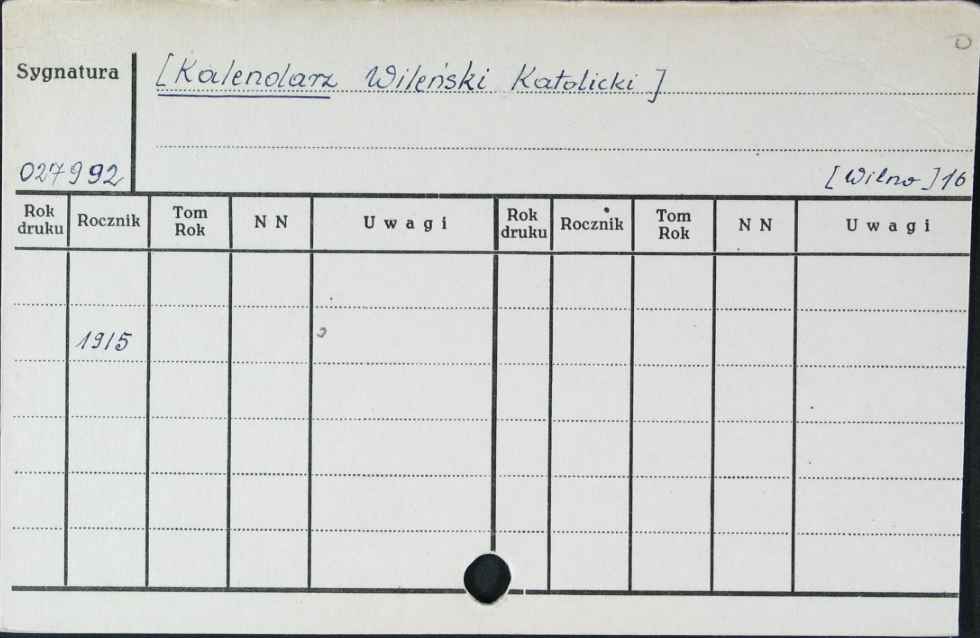 Sygnatura [Kalendarz Wileński Katolicki]
027992 [Wilno] 16
Rok druku Rocznik Tom Rok N N Uwagi Rok druku Rocznik Tom Rok N N Uwagi
1915